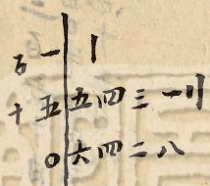 百一|〡
十五|五四三一〢
〇|六四二八